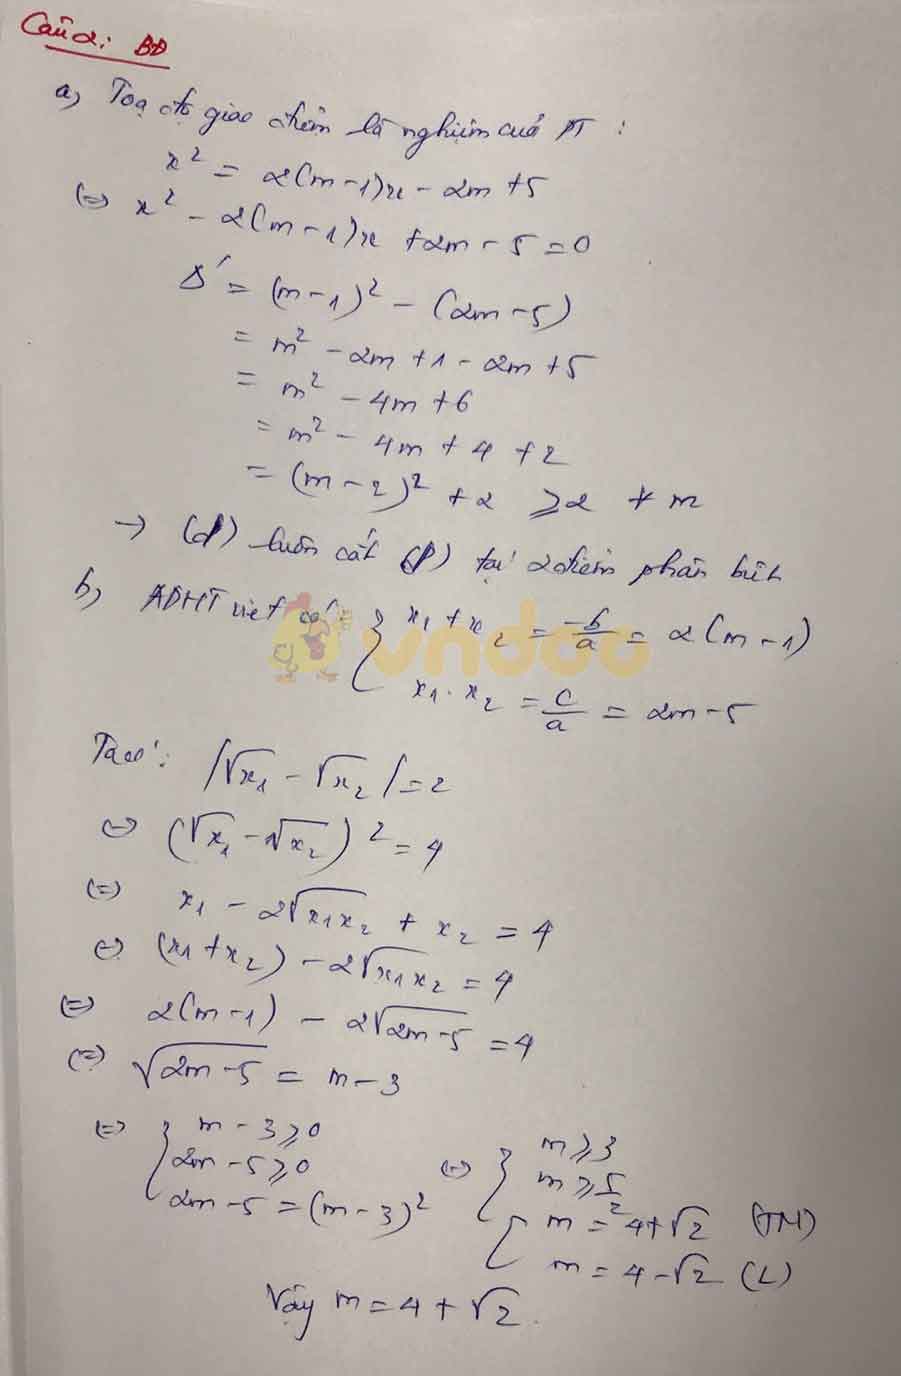 Câu 2: BĐ
a, Toạ độ giao điểm là nghiệm của PT :
x² = 2(m-1)x - 2m+5
(=) x² - 2(m-1)x + 2m - 5 = 0
Δ' = (m-1)² - (2m-5)
= m² - 2m + 1 - 2m + 5
= m² - 4m + 6
= m² - 4m + 4 + 2
= (m-2)² + 2 ⩾ 2 ∀ m
→ (d) luôn cắt (P) tại 2 điểm phân biệt
b, ADHT viet có: { x₁ + x₂ = -b/a = 2(m-1)
x₁ . x₂ = c/a = 2m-5
vndoc
Ta có: |√x₁ - √x₂| = 2
(=) (√x₁ - √x₂)² = 4
(=) x₁ - 2√x₁x₂ + x₂ = 4
(=) (x₁+x₂) - 2√x₁x₂ = 4
(=) 2(m-1) - 2√2m-5 = 4
(=) √2m-5 = m-3
(=) { m - 3 ⩾ 0
2m - 5 ⩾ 0
2m - 5 = (m-3)²
(=) { m ⩾ 3
m ⩾ 5/2
[ m = 4+√2 (TM)
m = 4-√2 (L)
Vậy m = 4 + √2.